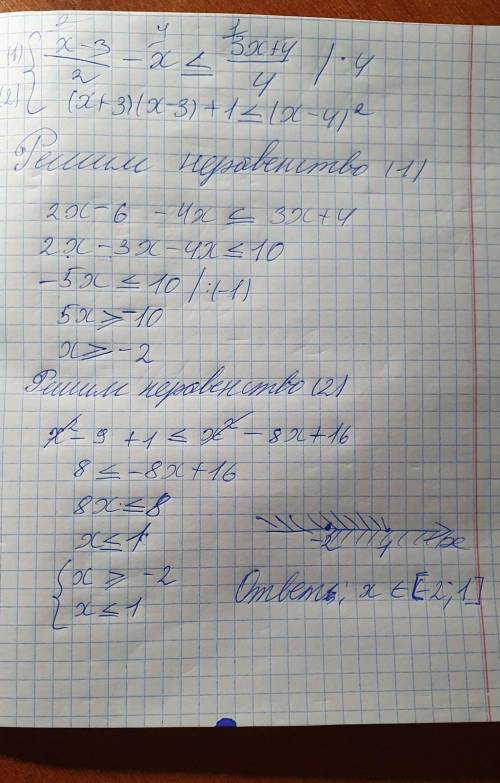 (1) { x-3/2 - x ≤ 3x+4/4 | · 4
(2) { (x+3)(x-3)+1 ≤ (x-4)²
Решим неравенство (1)
2x-6 -4x ≤ 3x+4
2x-3x-4x ≤ 10
-5x ≤ 10 | :(-1)
5x ≥ -10
x ≥ -2
Решим неравенство (2)
x² - 9 + 1 ≤ x² - 8x+16
8 ≤ -8x+16
8x ≤ 8
x ≤ 1
-2 x
{ x ≥ -2
{ x ≤ 1
Ответ: x ∈ [-2; 1]